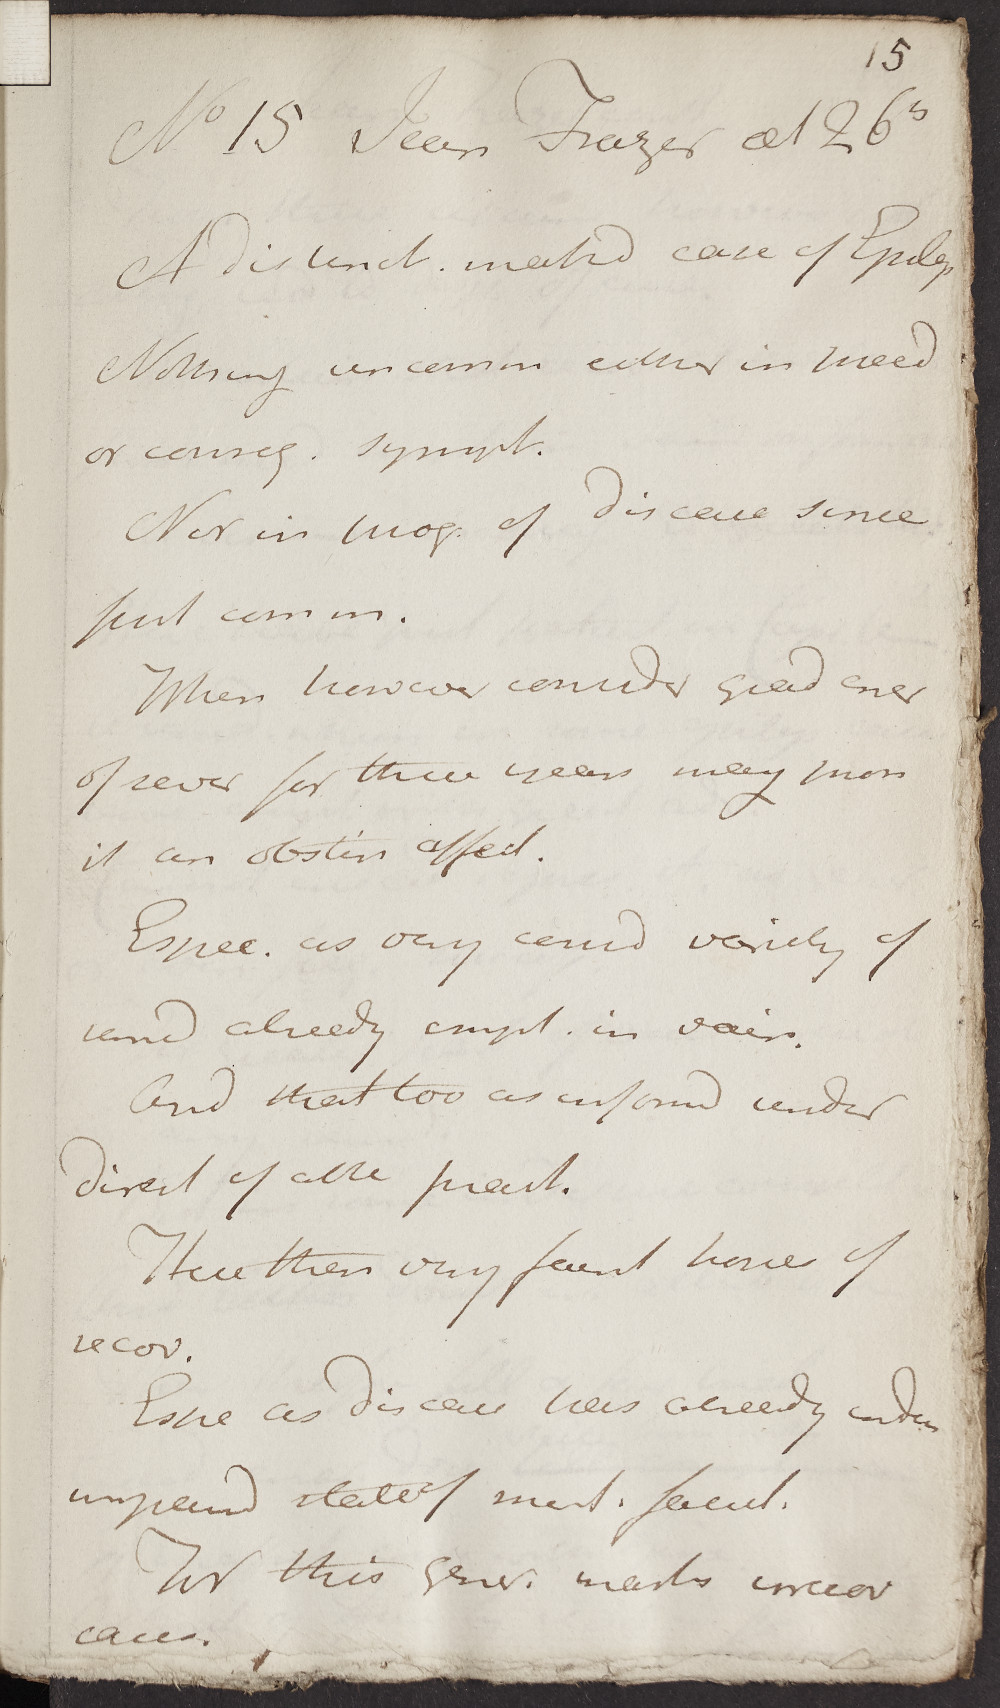 15
No 15 Jean Frazer æt 26
A distinct. mark'd case of Epilep
Nothing uncomm either in preced
or conseq. sympt.
Nor in prog. of disease since
first comm.
When however consider great ener
of sever for three years may pron
it an obstin affect.
Espec. as very consid variety of
remed already empl. in vain.
And that too as inform'd under
direct of able pract.
Here then very faint hopes of
recov.
Espe as disease has already induc
impaird state of ment. facult.
For this gener. marks irrecov
cases.